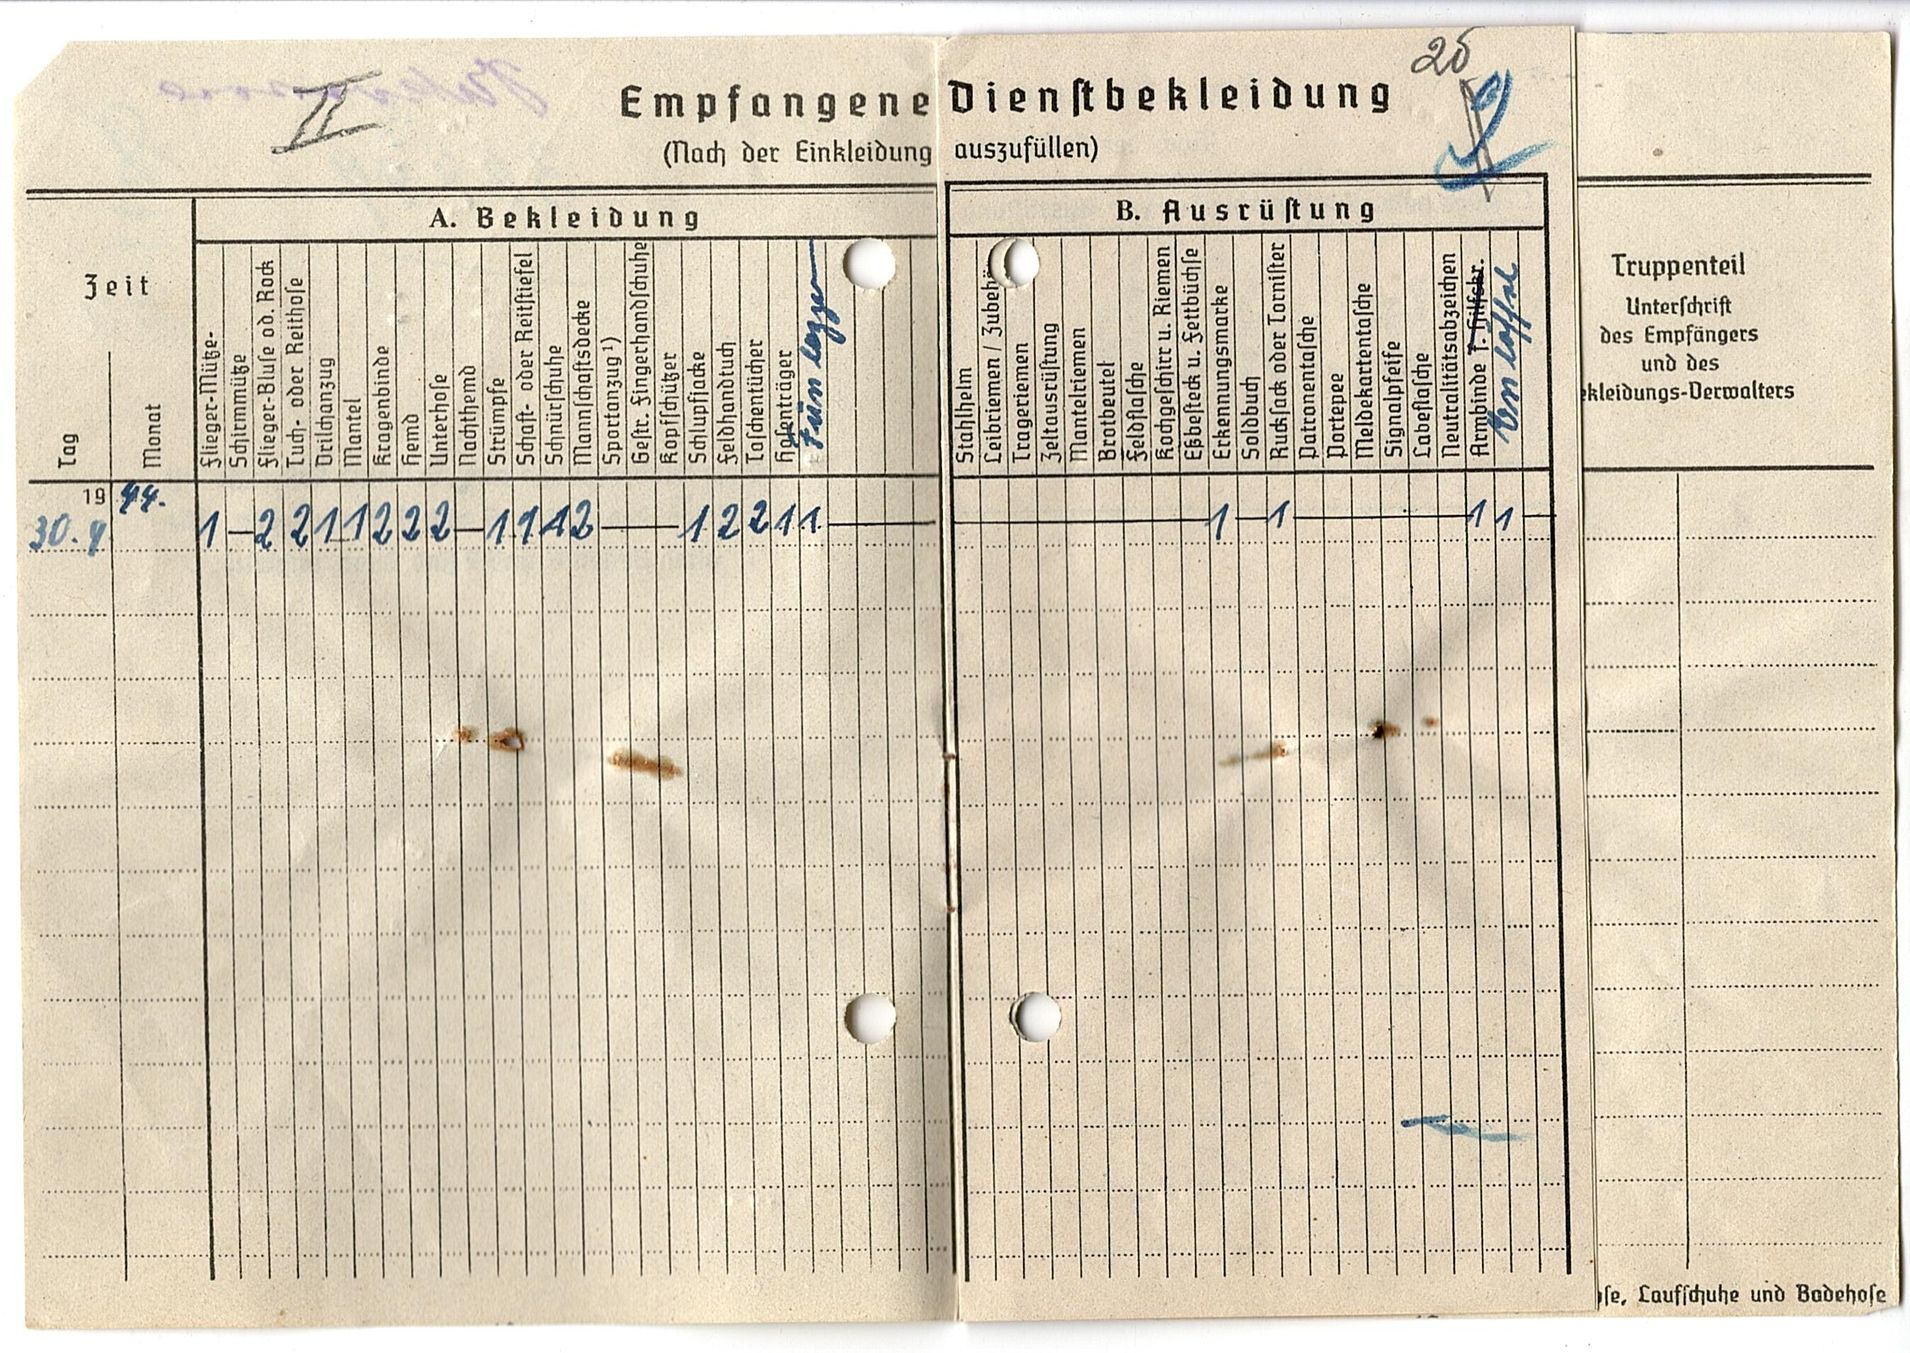 II
25
Empfangene Dienstbekleidung
(Nach der Einkleidung auszufüllen)
Zeit
Tag
Monat
A. Bekleidung
Flieger-Mütze-
Schirmmütze
Flieger-Bluse od. Rock
Tuch- oder Reithose
Drilchanzug
Mantel
Kragenbinde
Hemd
Unterhose
Nachthemd
Strümpfe
Schaft- oder Reitstiefel
Schnürschuhe
Mannschaftsdecke
Sportanzug ¹)
Gestr. Fingerhandschuhe
Kopfschützer
Schlupfjacke
Feldhandtuch
Taschentücher
Hosenträger
B. Ausrüstung
Stahlhelm
Leibriemen / Zubehör
Trageriemen
Zeltausrüstung
Mantelriemen
Brotbeutel
Feldflasche
Kochgeschirr u. Riemen
Eßbesteck u. Fettbüchse
Erkennungsmarke
Soldbuch
Rucksack oder Tornister
Patronentasche
Portepee
Meldekartentasche
Signalpfeife
Labeflasche
Neutralitätsabzeichen
Armbinde f. Hilfskr.
Truppenteil
Unterschrift
des Empfängers
und des
ekleidungs-Verwalters
19 44.
30. 4 1 — 2 2 1 1 2 2 2 — 1 1 1 2 — 1 2 2 1 1 — 1 — 1 — 1 1 —
se, Laufschuhe und Badehose